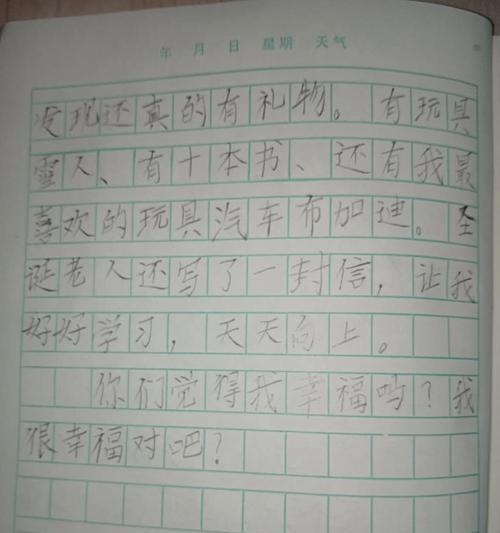 年 月 日 星期 天气
发现还真的有礼物。有玩具
雪人、有十本书、还有我最
喜欢的玩具汽车布加迪。圣
诞老人还写了一封信，让我
好好学习，天天向上。
你们觉得我幸福吗？我
很幸福对吧？